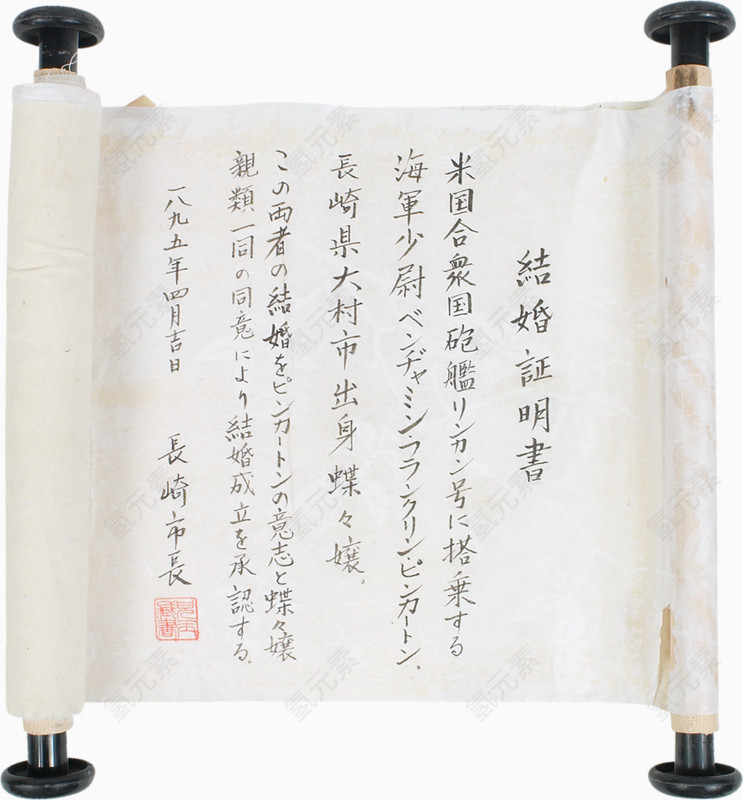 結婚証明書
米国合衆国砲艦リンカン号に搭乗する
海軍少尉ベンヂャミン・フランクリン・ピンカートン。
長崎県大村市出身蝶々嬢。
この両者の結婚をピンカートンの意志と蝶々嬢
親類一同の同意により結婚成立を承認する。
一八九五年四月吉日
長崎市長
氢元素